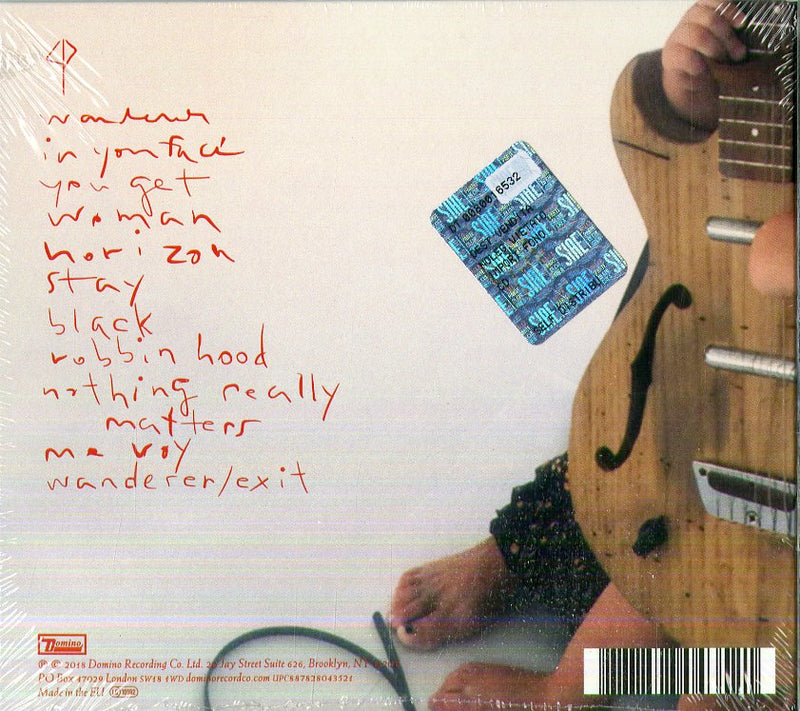 cp
wanderer
in your face
you get
woman
horizon
stay
black
robbin hood
nothing really
matters
me voy
wanderer/exit
DT 0080016532
VEST VENDITA
NOLEG VIETATO
IMPORT FONO
CD
SELF DISTRIBU
SIAE
Domino
℗ © 2018 Domino Recording Co. Ltd. 20 Jay Street Suite 626, Brooklyn, NY 11201
PO Box 47029 London SW18 1WD dominorecordco.com UPC887828043521
Made in the EU LC 10992